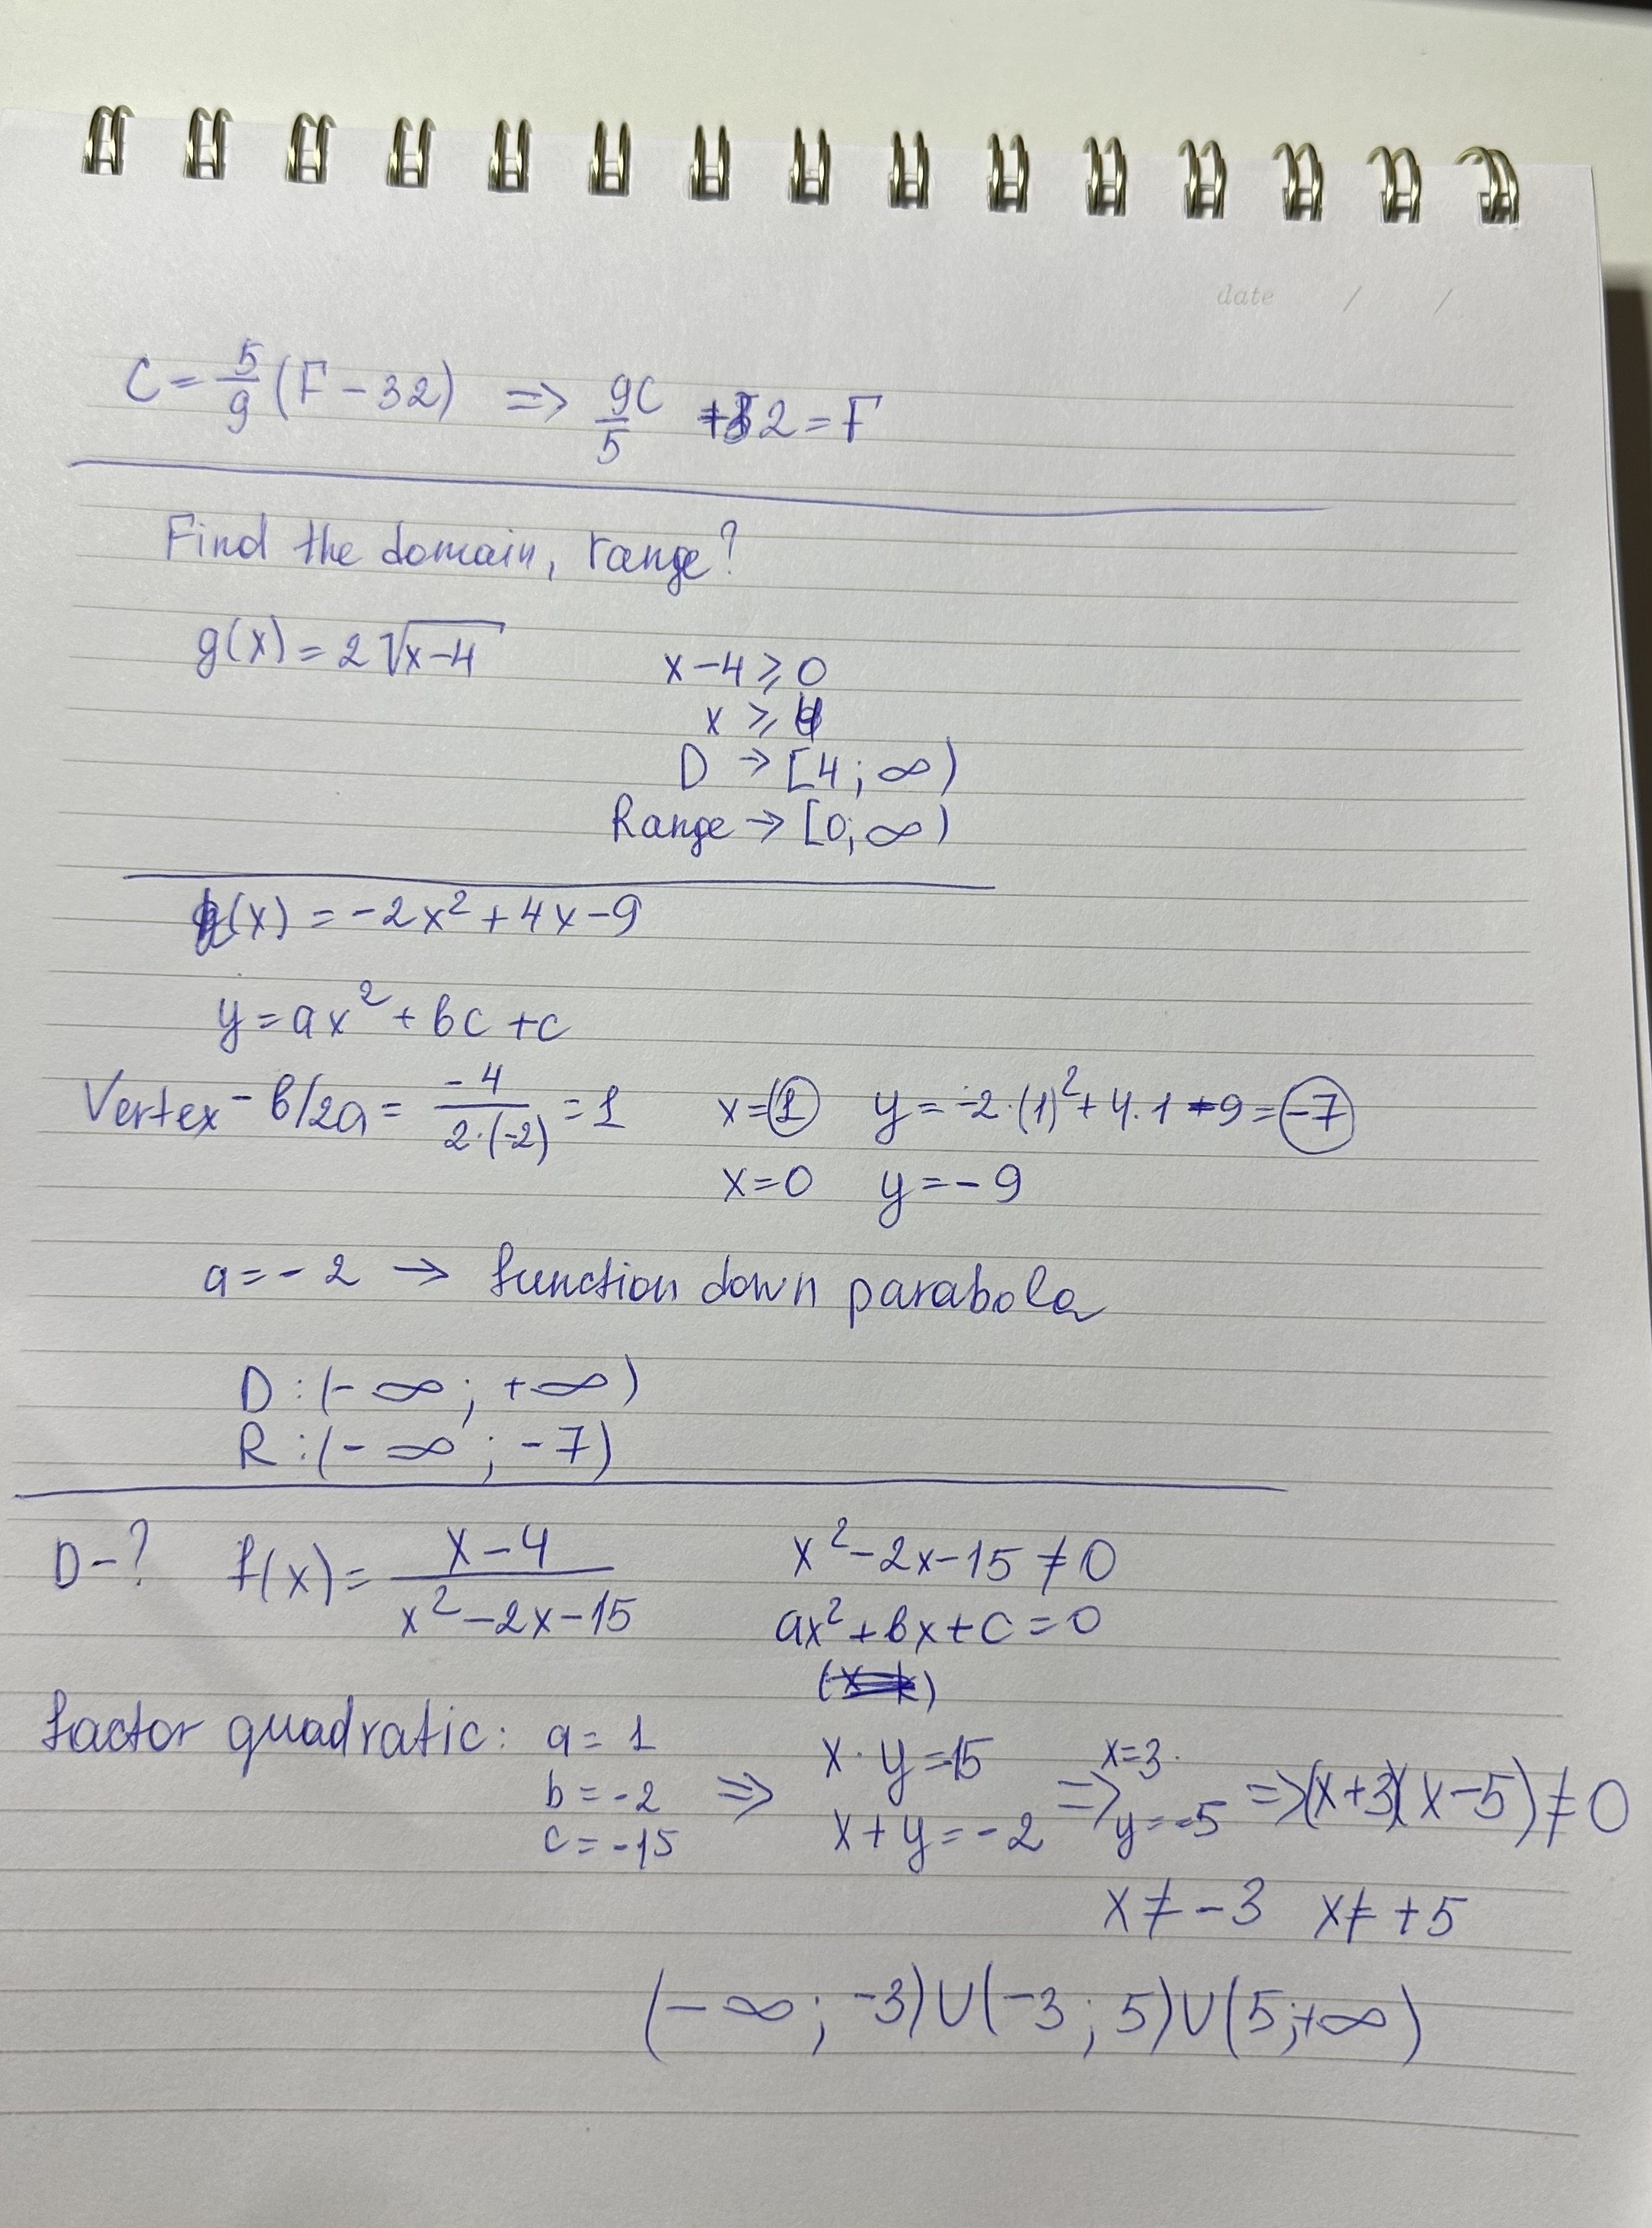 date / /
C = 5/9 (F - 32) => 9C/5 + 32 = F
Find the domain, range?
g(x) = 2√(x-4)
x - 4 ⩾ 0
x ⩾ 4
D → [4; ∞)
Range → [0; ∞)
h(x) = -2x² + 4x - 9
y = ax² + bc + c
Vertex - b/2a = -4/2·(-2) = 1 x = 1 y = -2·(1)² + 4·1 - 9 = -7
x = 0 y = -9
a = -2 → function down parabola
D : (-∞; +∞)
R : (-∞; -7)
D-? f(x) = x-4/x²-2x-15 x² - 2x - 15 ≠ 0
ax² + bx + c = 0
factor quadratic: a = 1
b = -2
c = -15
=> x · y = -15
x + y = -2
=> x = 3
y = -5
=> (x+3)(x-5) ≠ 0
x ≠ -3 x ≠ +5
(-∞; -3) ∪ (-3; 5) ∪ (5; +∞)